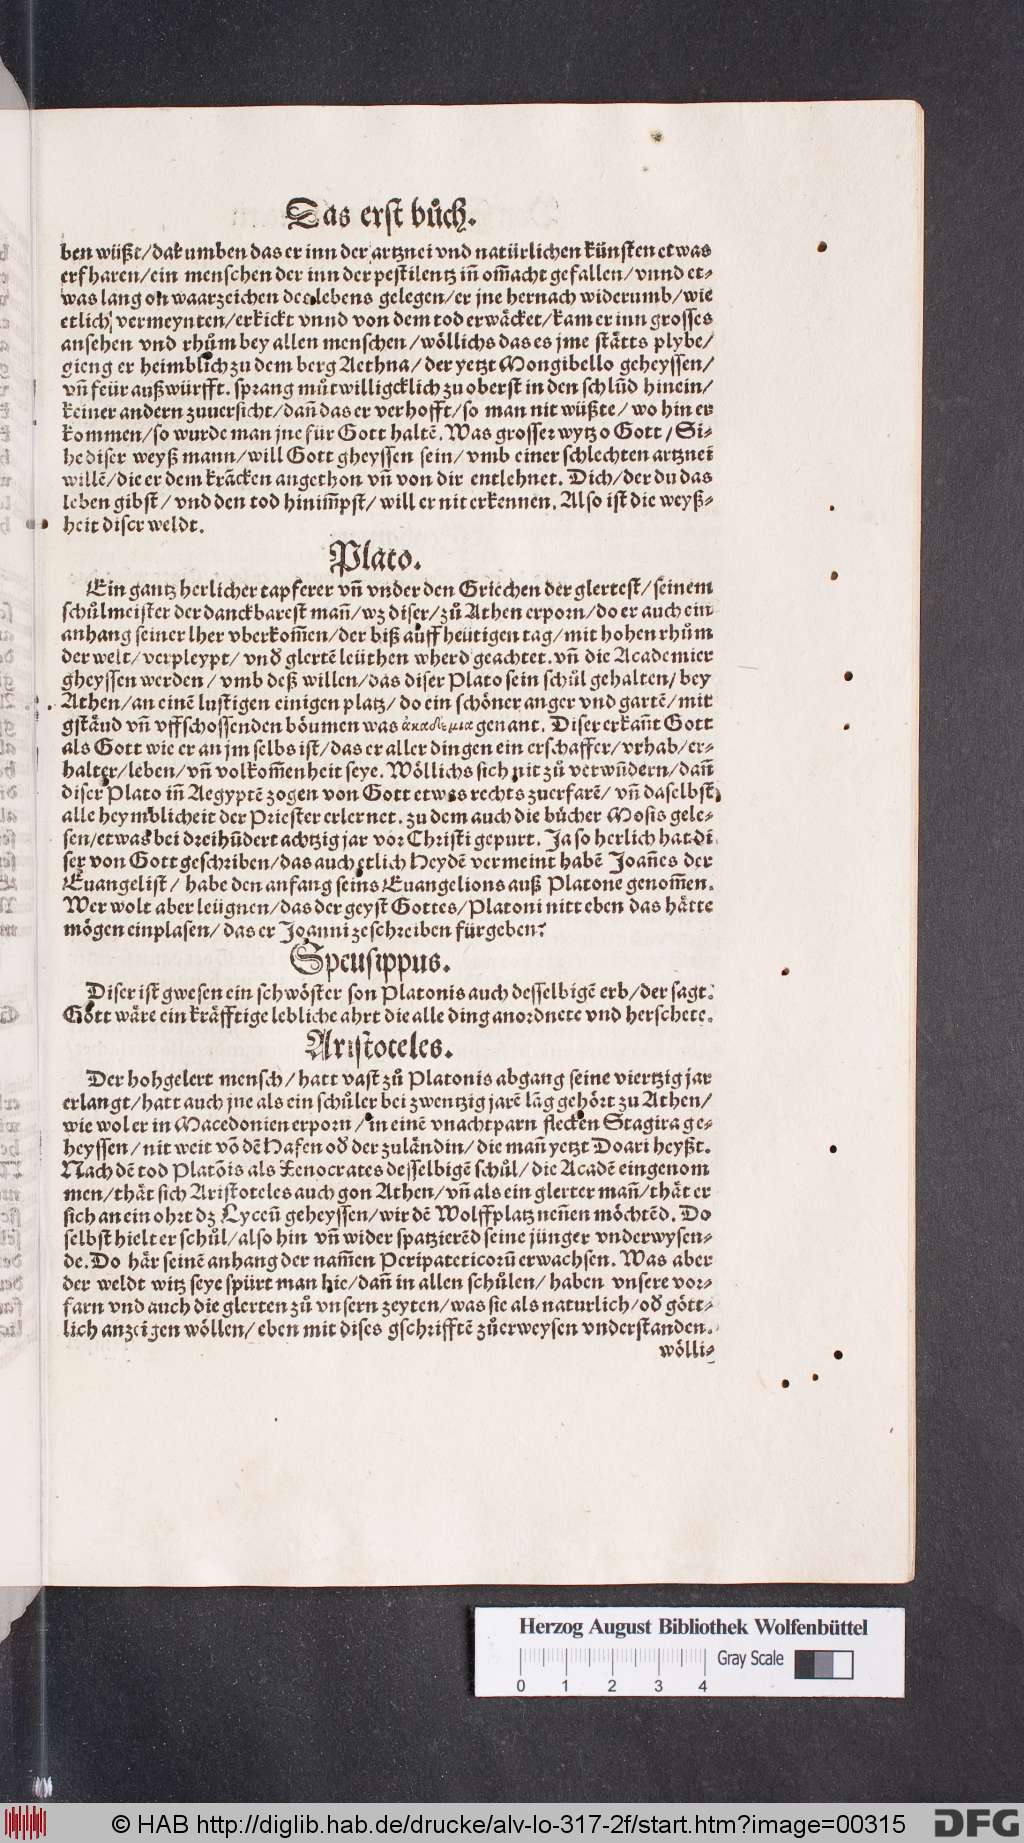 Das erst bůch.
ben wüßt/darumben das er inn der artznei vnd natürlichen künsten etwas
erfharen/ein menschen der inn der pestilentz iñ om̃acht gefallen/vnnd et⸗
was lang on waarzeichen des lebens gelegen/er jne hernach widerumb/wie
etlich vermeynten/erkickt vnnd von dem tod erwäcket/kam er inn grosses
ansehen vnd rhům bey allen menschen/wöllichs das es jme stätts plybe/
gieng er heimblich zu dem berg Aethna/der yetzt Mongibello geheyssen/
vñ feür außwürfft. sprang můtwilligcklich zu oberst in den schlũd hinein/
keiner andern zuuersicht/dañ das er verhofft/so man nit wüßte/wo hin er
kommen/so wurde man jne für Gott haltẽ. Was grosser wytz o Gott/Si⸗
he diser weyß mann/will Gott gheyssen sein/vmb einer schlechten artznei
willẽ/die er dem krãcken angethon vñ von dir entlehnet. Dich/der du das
leben gibst/vnd den tod hinim̃pst/will er nit erkennen. Also ist die weyß⸗
heit diser weldt.
Plato.
Ein gantz herlicher tapferer vñ vnder den Griechen der glertest/seinem
schůlmeister der danckbarest mañ/wz diser/zů Athen erporn/do er auch ein
anhang seiner lher vberkom̃en/der biß auff heütigen tag/mit hohen rhům
der welt/verpleypt/vnd glertẽ leüthen wherd geachtet. vñ die Academier
gheyssen werden/vmb deß willen/das diser Plato sein schůl gehalten/bey
Athen/an einẽ lustigen einigen platz/do ein schöner anger vnd gartẽ/mit
gstãud vñ vffschossenden böumen was ἀκαδεμια genant. Diser erkañt Gott
als Gott wie er an jm selbs ist/das er aller dingen ein erschaffer/vrhab/er⸗
halter/leben/vñ volkom̃enheit seye. Wöllichs sich nit zů verwũdern/dañ
diser Plato iñ Aegyptẽ zogen von Gott etwas rechts zuerfarẽ/vñ daselbst
alle heymblicheit der Priester erlernet. zu dem auch die bücher Mosis gele⸗
sen/etwas bei dreihũdert achtzig jar vor Christi gepurt. Ja so herlich hat di
ser von Gott geschriben/das auch etlich Heydẽ vermeint habẽ Joañes der
Euangelist/habe den anfang seins Euangelions auß Platone genom̃en.
Wer wolt aber leügnen/das der geyst Gottes/Platoni nitt eben das hätte
mögen einplasen/das er Joanni ze schreiben fürgeben?
Speusippus.
Diser ist gwesen ein schwöster son Platonis auch desselbigẽ erb/der sagt
Gott wäre ein kräfftige lebliche ahrt die alle ding anordnete vnd herschete.
Aristoteles.
Der hohgelert mensch/hatt vast zů Platonis abgang seine viertzig jar
erlangt/hatt auch jne als ein schůler bei zwentzig jarẽ lãg gehört zu Athen/
wie wol er in Macedonien erporn/in einẽ vnachtparn flecken Stagira ge⸗
heyssen/nit weit võ dẽ Hafen od der zuländin/die mañ yetzt Doari heyßt.
Nach dẽ tod Platõis als Xenocrates desselbigẽ schůl/die Acadẽ eingenom
men/thät sich Aristoteles auch gon Athen/vñ als ein glerter mañ/thät er
sich an ein ohrt dz Lyceũ geheyssen/wir dẽ Wolffplatz neñen möchtẽd. Do
selbst hielt er schůl/also hin vñ wider spatzierẽd seine jünger vnderwysen⸗
de. Do här seinẽ anhang der nam̃en Peripateticorũ erwachsen. Was aber
der weldt witz seye spürt man hie/dañ in allen schůlen/haben vnsere vor⸗
farn vnd auch die glerten zů vnsern zeyten/was sie als naturlich/od gött⸗
lich anzeigen wöllen/eben mit dises gschrifftẽ zůerweysen vnderstanden.
wölli⸗
Herzog August Bibliothek Wolfenbüttel
Gray Scale
0 1 2 3 4
© HAB http://diglib.hab.de/drucke/alv-lo-317-2f/start.htm?image=00315
DFG